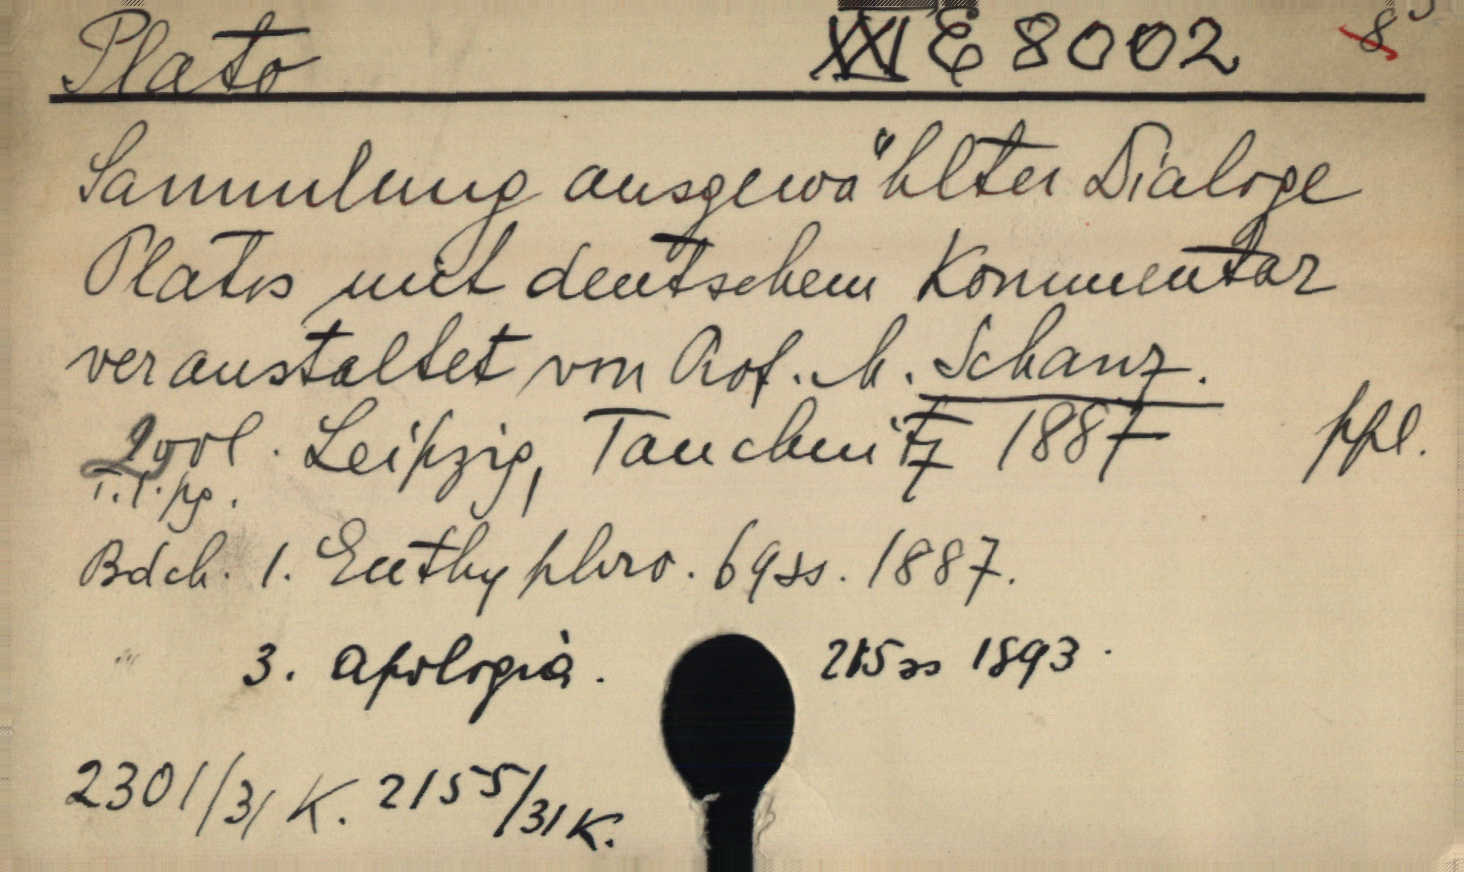 Plato XXI E 8002 8
Sammlung ausgewählter Dialoge
Platos mit deutschem Kommentar
veranstaltet von Prof. M. Schanz.
2 vol. Leipzig, Tauchnitz 1887 ppl.
T.l.pg.
Bdch. 1. Euthyphro. 69ss. 1887.
" 3. Apologia. 215ss 1893.
2301/31 K. 2155/31 K.